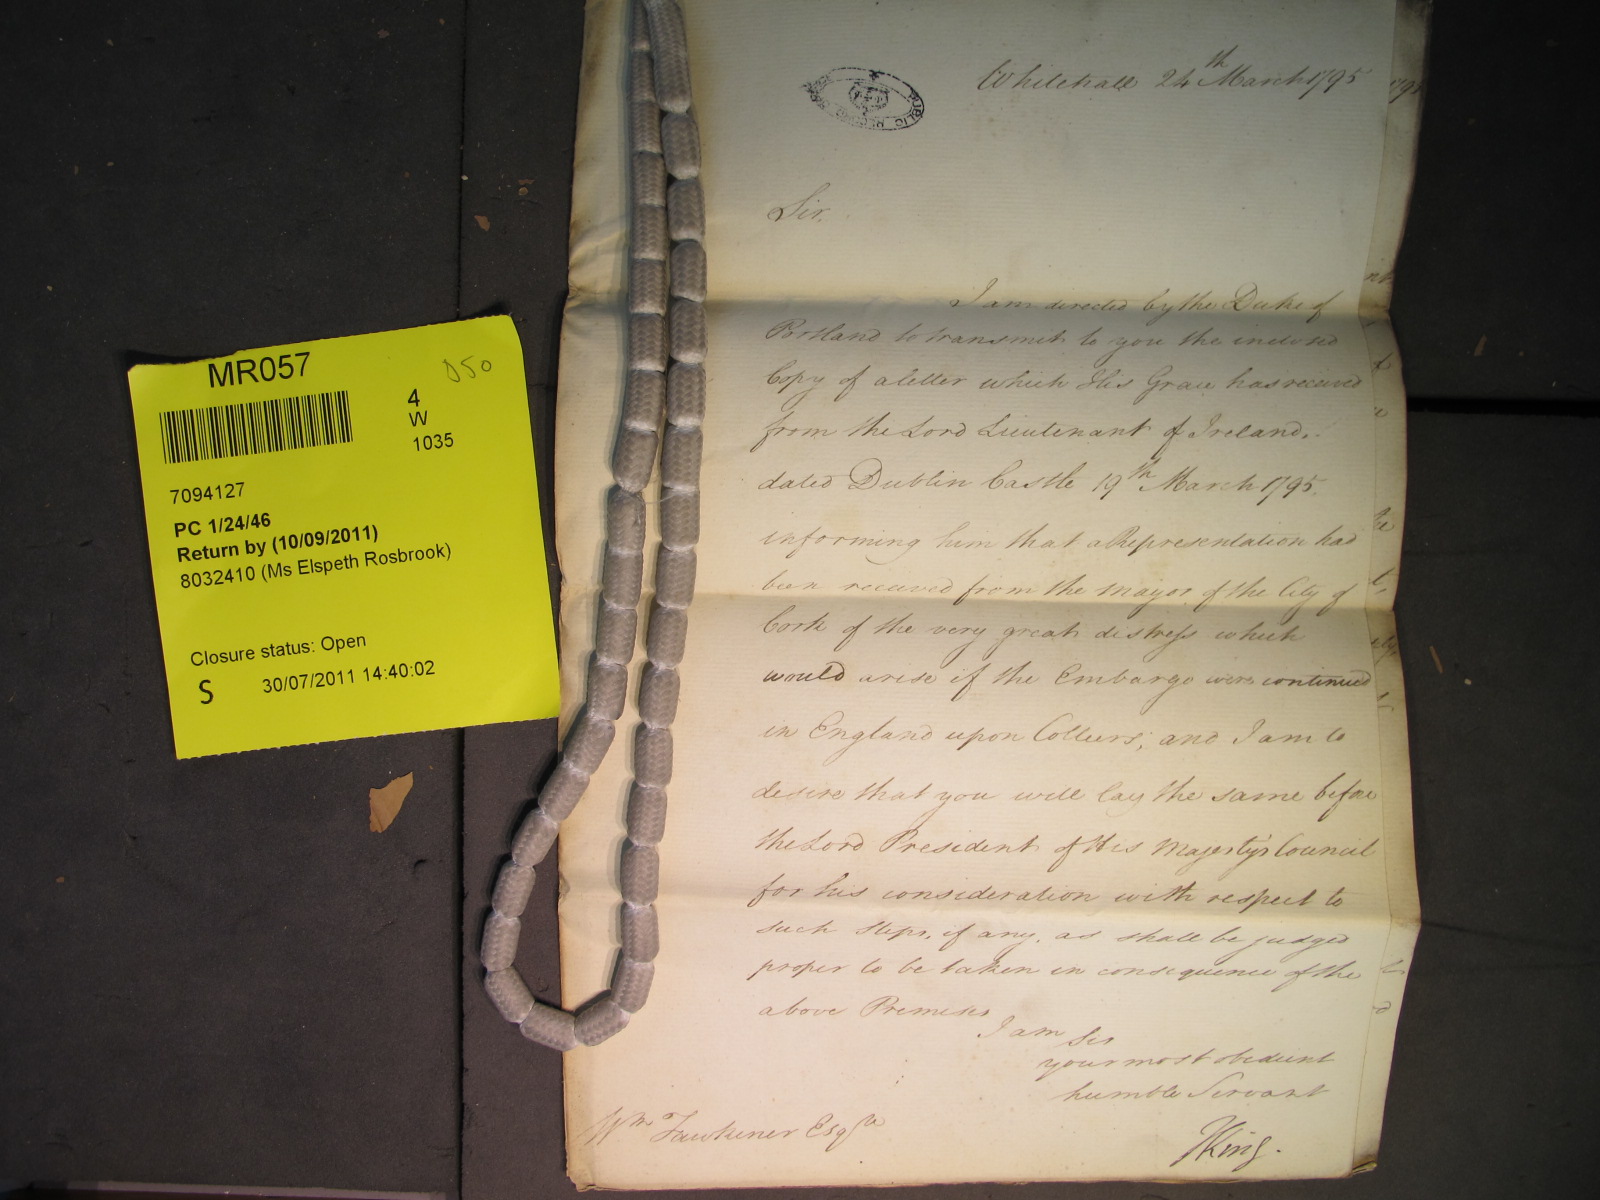 MR057
D50
4
W
1035
7094127
PC 1/24/46
Return by (10/09/2011)
8032410 (Ms Elspeth Rosbrook)
Closure status: Open
S 30/07/2011 14:40:02
PUBLIC RECORD
Whitehall 24th March 1795
Sir.
I am directed by the Duke of
Portland to transmit to you the inclosed
Copy of a letter which His Grace has received
from the Lord Lieutenant of Ireland,
dated Dublin Castle 19th March 1795.
informing him that a Representation had
been received from the Mayor of the City of
Cork of the very great distress which
would arise if the Embargo were continued
in England upon Colliers; and I am to
desire that you will lay the same before
the Lord President of His Majesty's Council
for his consideration with respect to
such steps, if any, as shall be judged
proper to be taken in consequence of the
above Premises
I am Sir
your most obedient
humble Servant
Wm Fawkener Esqre
J King.